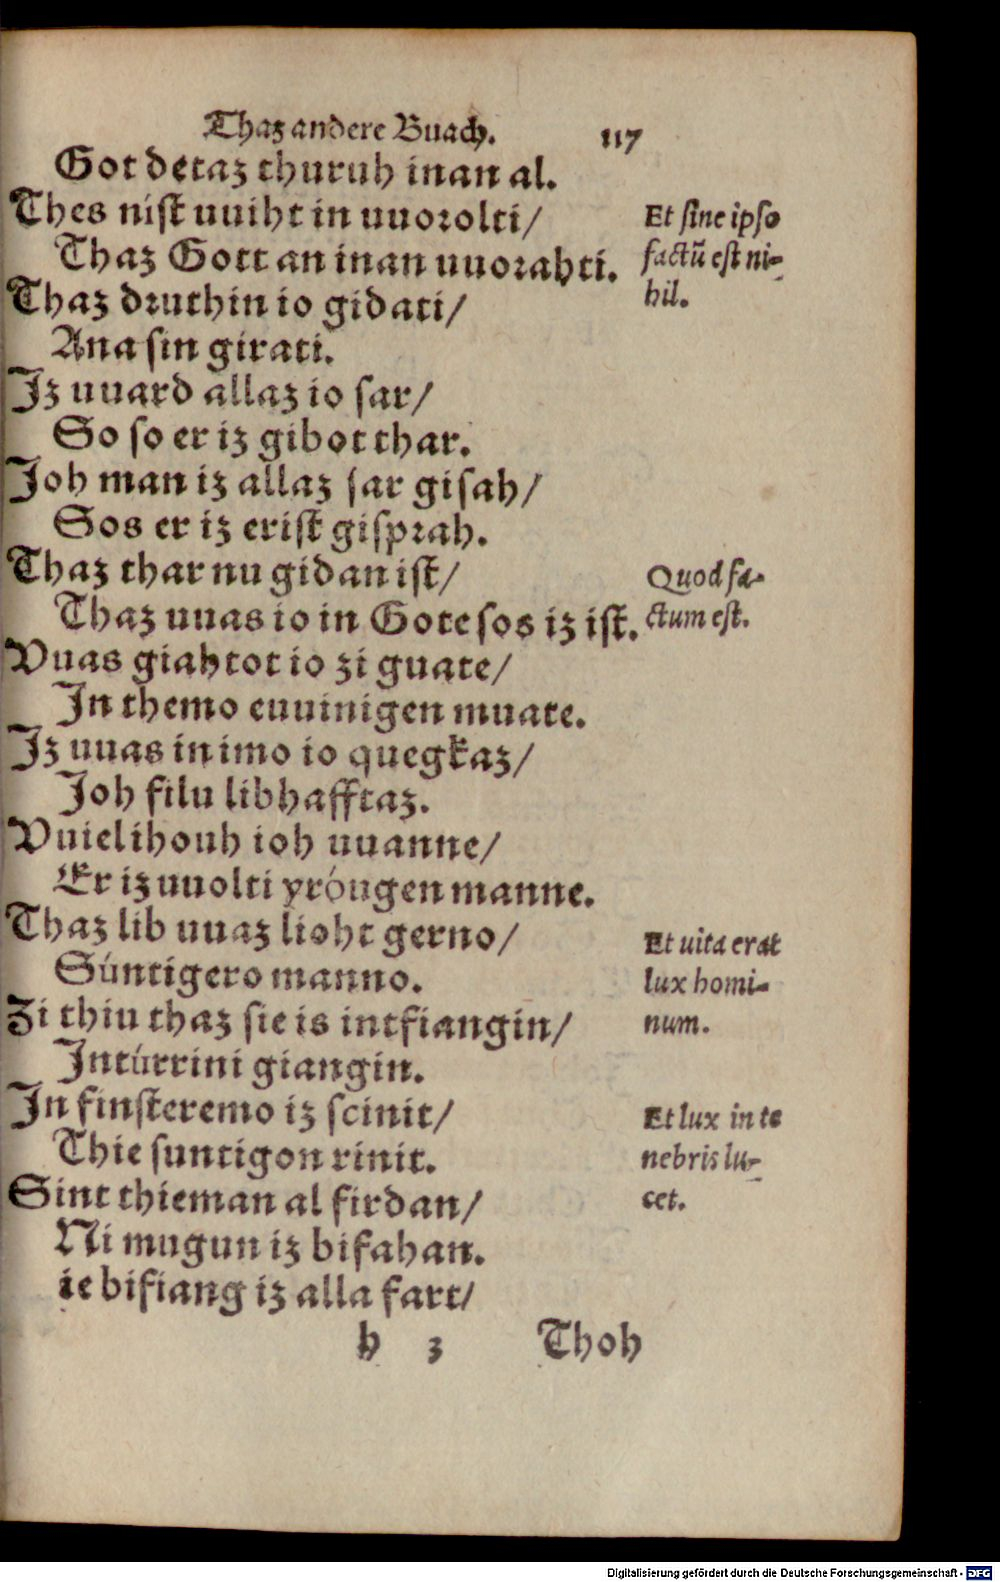 Thaz andere Buach. 117
Got detaz thuruh inan al.
Thes nist uuiht in uuorolti/
Et sine ipso
Thaz Gott an inan uuorahti.
factũ est ni-
Thaz druthin io gidati/
hil.
Ana sin girati.
Iz uuard allaz io sar/
So so er iz gibot thar.
Ioh man iz allaz sar gisah/
Sos er iz erist gisprah.
Thaz thar nu gidan ist/
Quod fa-
Thaz uuas io in Gote sos iz ist.
ctum est.
Vuas giahtot io zi guate/
In themo euuinigen muate.
Iz uuas in imo io quegkaz/
Ioh filu libhafftaz.
Vuielihouh ioh uuanne/
Er iz uuolti yróugen manne.
Thaz lib uuaz lioht gerno/
Et uita erat
Súntigero manno.
lux homi-
Zi thiu thaz sie is intfiangin/
num.
Intúrrini giangin.
In finsteremo iz scinit/
Et lux in te
Thie suntigon rinit.
nebris lu-
Sint thieman al firdan/
cet.
Ni mugun iz bifahan.
ie bifiang iz alla fart/
h 3 Thoh
Digitalisierung gefördert durch die Deutsche Forschungsgemeinschaft - DFG